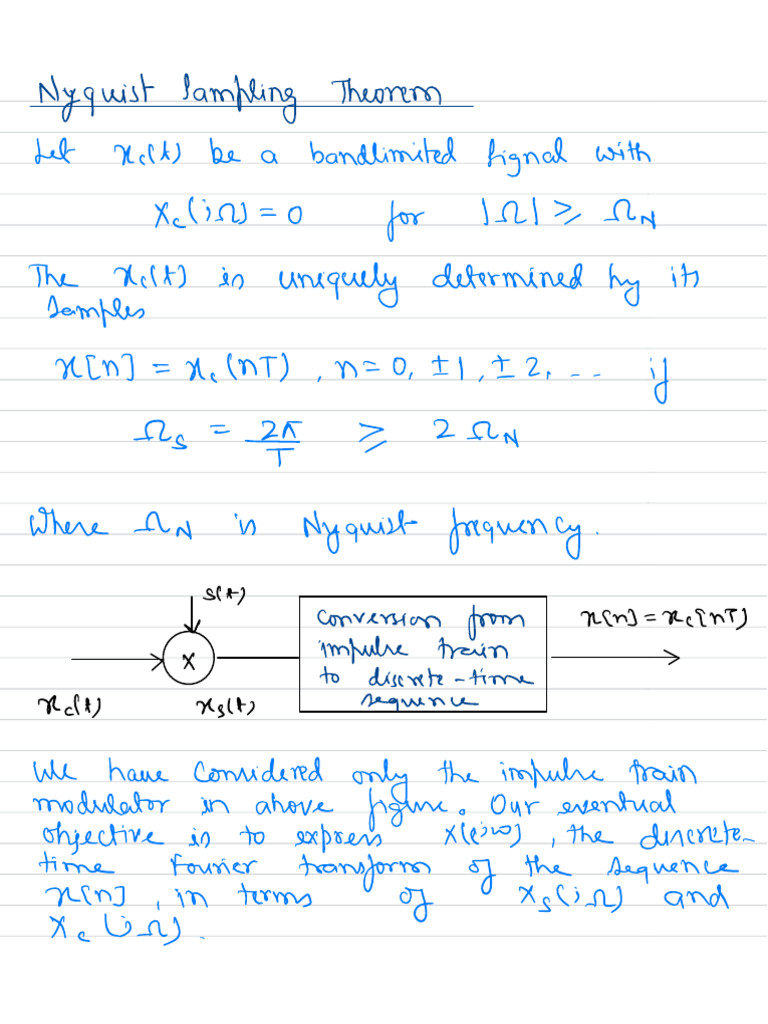 Nyquist Sampling Theorem
Let x_c(t) be a bandlimited signal with
X_c(jΩ) = 0 for |Ω| ≥ Ω_N
The x_c(t) is uniquely determined by its
samples
x[n] = x_c(nT), n = 0, ±1, ±2, ... if
Ω_S = 2π/T ≥ 2Ω_N
Where Ω_N is Nyquist frequency.
s(t)
conversion from
impulse train
to discrete-time
sequence
x[n] = x_c[nT)
X
x_c(t)
x_s(t)
We have considered only the impulse train
modulator in above figure. Our eventual
objective is to express X(e^jω), the discrete-
time Fourier transform of the sequence
x[n], in terms of X_s(jΩ) and
X_c(jΩ).